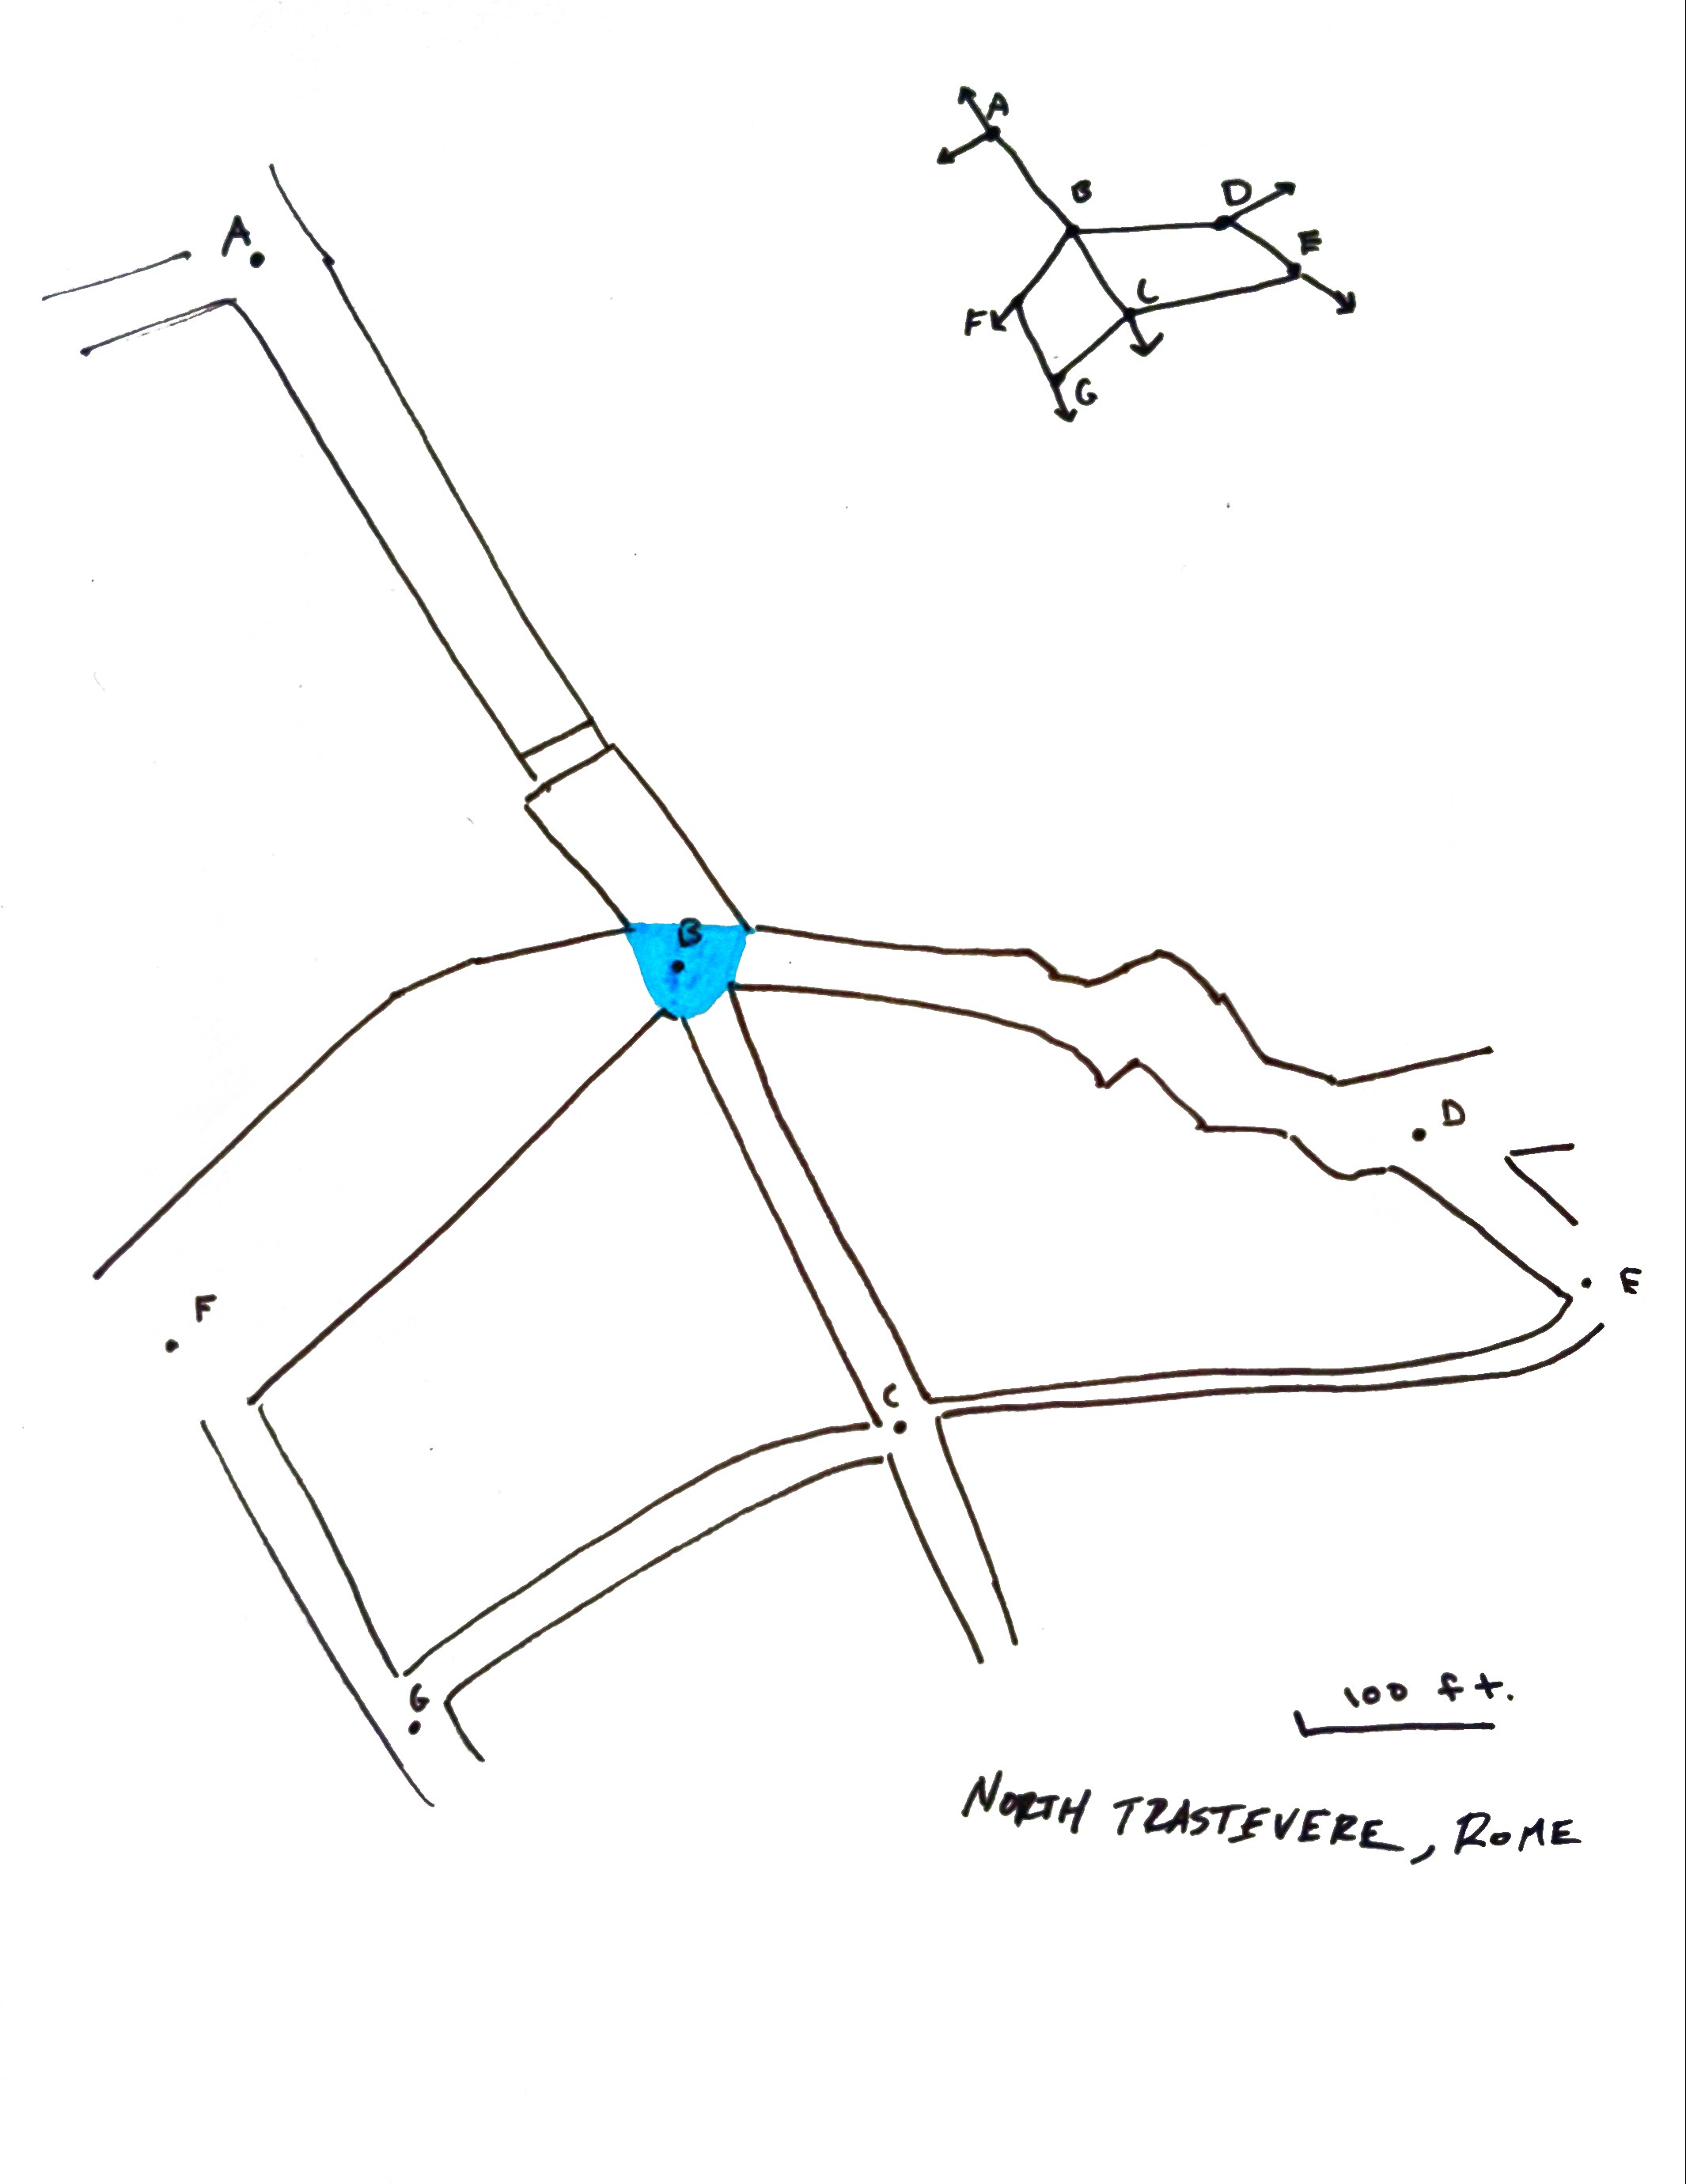 A
B
D
E
C
F
G
A
B
D
E
F
C
G
100 ft.
NORTH TRASTEVERE, ROME